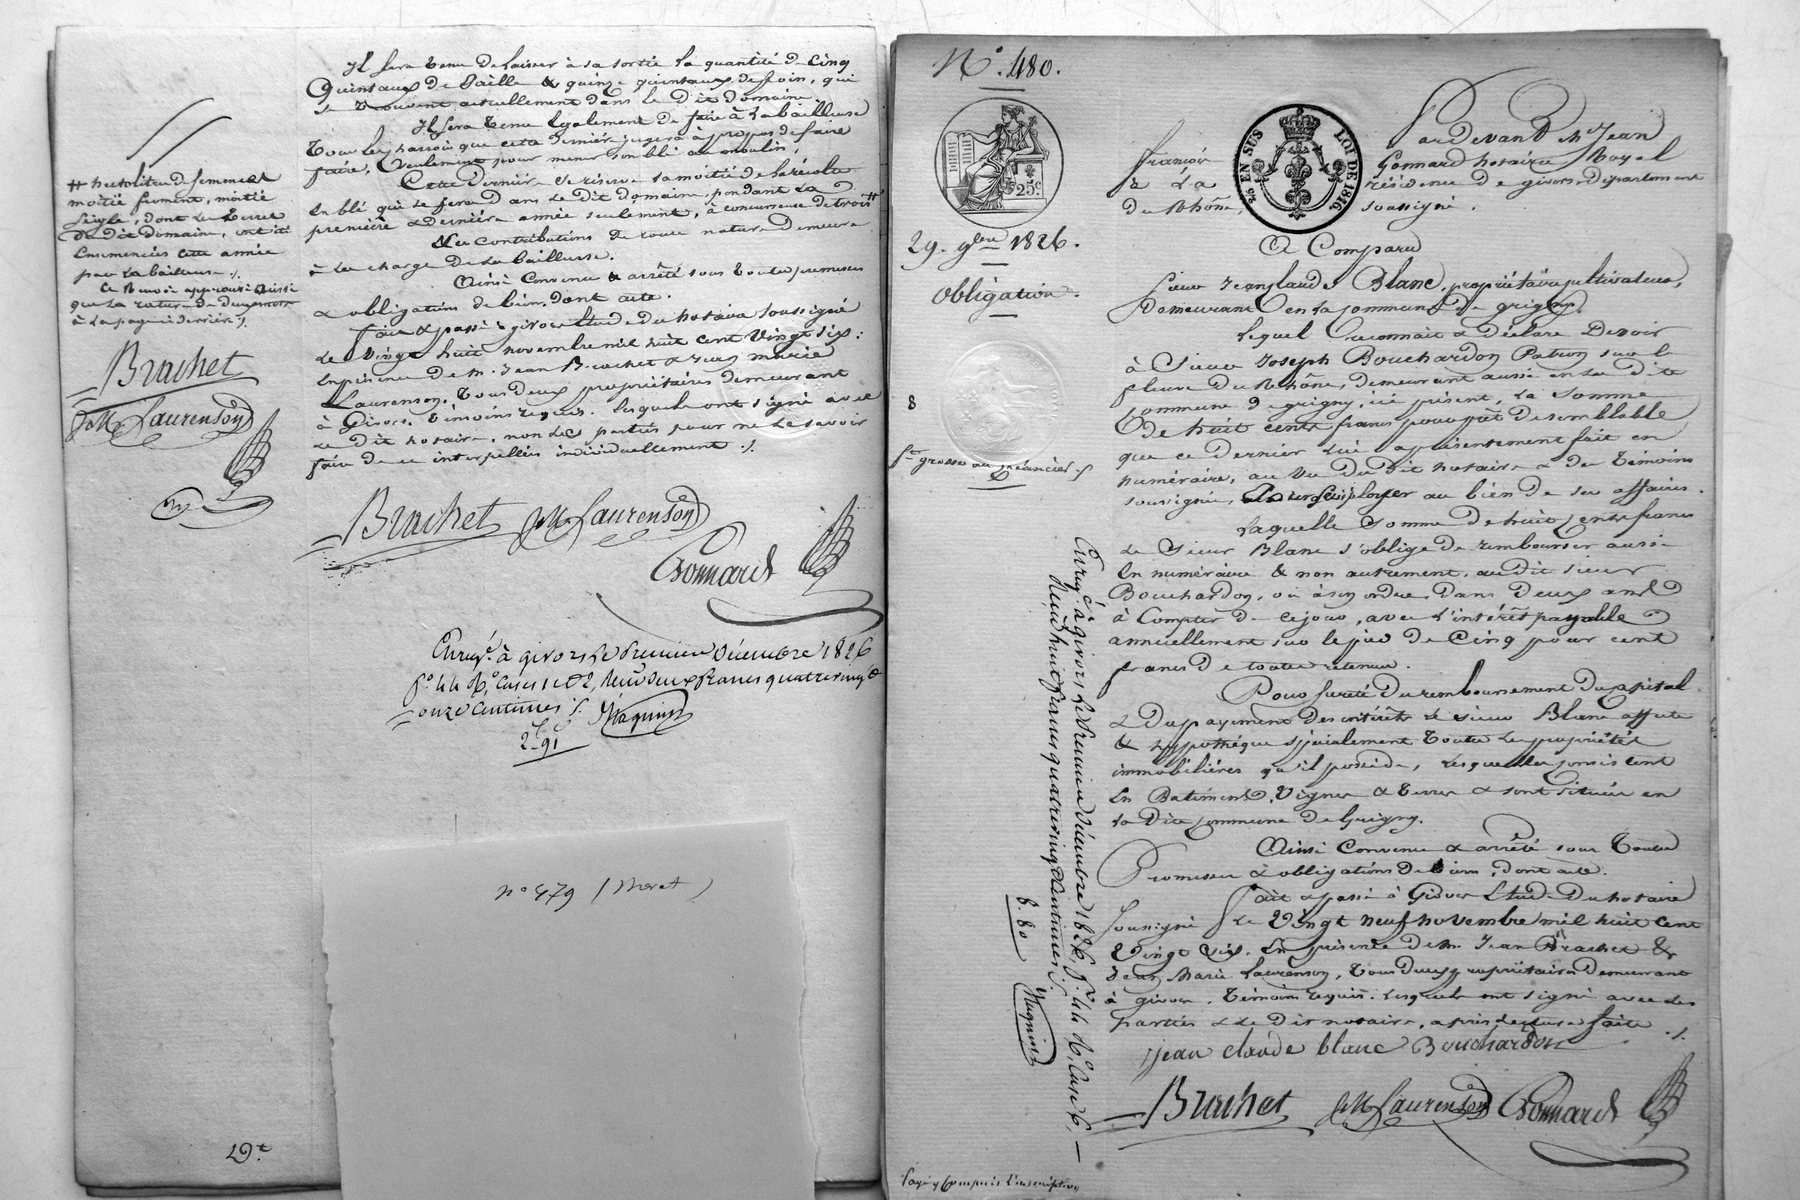 Il sera tenu de laisser à sa sortie la quantité de cinq
quintaux de paille & quinze quintaux de foin, qui
se trouvent actuellement dans le dit domaine.
Il sera tenu également de faire à la bailleuse
tous les charrois que cette dernière jugera à propos de faire
faire, seulement pour mener son blé au moulin,
Cette dernière se réserve la moitié de la récolte
en blé qui se fera dans le dit domaine, pendant la
première & dernière année seulement, à concurrence de trois #
Les contributions de toute nature demeure
à la charge de la bailleuse.
Ainsi convenu & arrêté sous toutes promesses
& obligations de bien, dont acte.
Fait & passé à givors étude du notaire soussigné
le vingt huit novembre mil huit cent vingt six:
en présence de m. Jean Brachet & Jean marie
Laurenson, tous deux propriétaires demeurant
à Givors, témoins requis. lesquels ont signé avec
le dit notaire, non les parties pour ne le savoir
faire de ce interpellées individuellement ./.
# hectolitres de semences
moitié froment, moitié
seigle, dont les terres
du dit domaine, ont été
ensemencées cette année
par la bailleuse ./.
Ce renvoi approuvé ainsi
que la rature de deux mots
à la page derrière ./.
Brachet
JM Laurenson
Brachet JM Laurenson
Gonnard
Enregé. à givors le premier décembre 1826
fo. 44 Ro. cases 1 et 2, reçu deux francs quatre vingt
onze centimes ./.
2-91
n° 479 (Moret)
N°. 480.
25c
2c. EN SUS LOI DE 1816.
29. 9bre 1826.
Obligation.
8
fe grosse au créancier ./.
Par devant Me Jean
françois Gonnard notaire Royal
à la résidence de givors département
du Rhône, soussigné.
A Comparu
Sieur Jean Claude Blanc, propriétaire cultivateur,
demeurant en la commune de grigny.
Lequel reconnait & déclare devoir
à Sieur Joseph Bouchardon Patron sur le
fleuve du Rhône, demeurant aussi en la dite
commune de grigny, ici présent, la somme
de huit cents francs pour prêt de semblable
que ce dernier lui a présentement fait en
numéraire, au vu du dit notaire & des témoins
soussignés, pour employer au bien de ses affaires.
Laquelle somme de huit cents francs
le Sieur Blanc s'oblige de rembourser aussi
en numéraire & non autrement, au dit sieur
Bouchardon, ou à son ordre, dans deux ans
à compter de ce jour, avec l'intérêt payable
annuellement sur le pied de cinq pour cent
francs de toute retenue.
Pour sureté du remboursement du capital
& du payement des intérêts le sieur Blanc affecte
& hypothéque spécialement toutes les propriétés
immobilières qu'il possède, lesquelles consistent
en Batiments, vignes & terres & sont situées en
la dite commune de Grigny.
Ainsi convenu & arrêté sous toutes
Promesses & obligations de bien, dont acte.
Fait & passé à Givors étude du notaire
soussigné le vingt neuf novembre mil huit cent
vingt six. En présence de m. Jean Brachet &
Jean Marie Laurenson, tous deux propriétaires demeurant
à givors, témoins requis. lesquels ont signé avec les
parties & le dit notaire, après lecture faite ./.
jean claude blanc Bouchardon
Brachet JM Laurenson Gonnard
Enregé. à givors le premier décembre 1826, fo. 44 Ro. case 6,
reçu huit francs quatre vingt centimes ./.
8.80